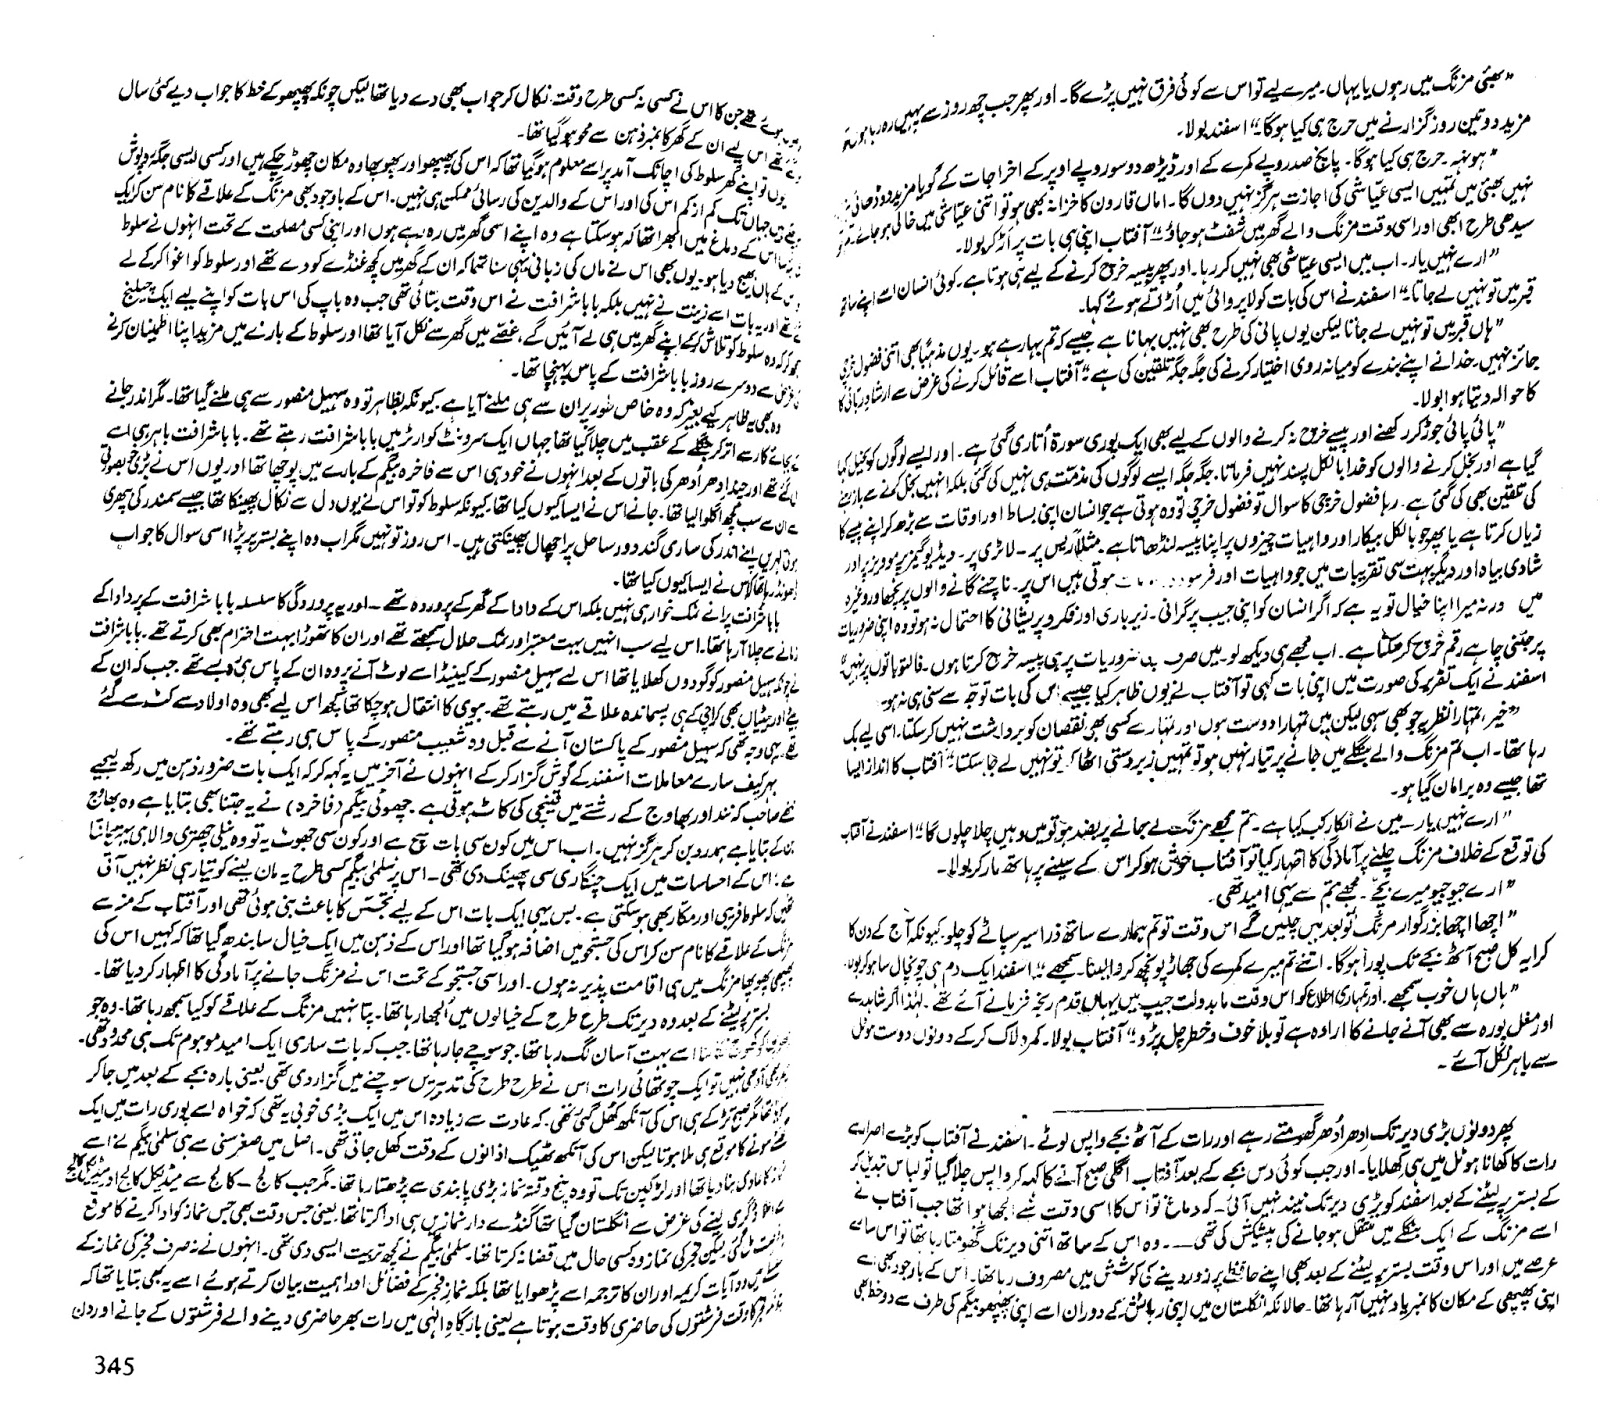 "بھئی مزنگ میں رہوں یا یہاں۔ میرے لیے تو اس سے کوئی فرق نہیں پڑے گا۔ اور پھر جب چھ روز سے یہیں رہ رہا ہوں تو
مزید دو تین روز گزارنے میں حرج ہی کیا ہو گا۔" اسفند بولا۔
"ہونہہ۔ حرج ہی کیا ہو گا۔ پانچ صد روپے کمرے کے اور ڈیڑھ دو سو روپے اوپر کے اخراجات کے گویا مزید دو ڈھائی
نہیں بھئی میں تمہیں ایسی عیاشی کی اجازت ہرگز نہیں دوں گا۔ اماں قارون کا خزانہ بھی ہو تو اتنی عیاشی میں خالی ہو جائے۔
سیدھی طرح ابھی اور اسی وقت مزنگ والے گھر میں شفٹ ہو جاؤ۔" آفتاب اپنی ہی بات پر اڑ کر بولا۔
"ارے نہیں یار۔ اب میں ایسی عیاشی بھی نہیں کر رہا۔ اور پھر پیسہ خرچ کرنے کے لیے ہی ہوتا ہے۔ کوئی انسان اسے اپنے ساتھ
قبر میں تو نہیں لے جاتا۔" اسفند نے اس کی بات کو لاپروائی میں اڑاتے ہوئے کہا۔
"ہاں قبر میں تو نہیں لے جاتا لیکن یوں پانی کی طرح بھی نہیں بہاتا ہے جیسے کہ تم بہا رہے ہو۔ یوں مذہباً بھی اتنی فضول خرچی
جائز نہیں۔ خدا نے اپنے بندے کو میانہ روی اختیار کرنے کی جگہ جگہ تلقین کی ہے۔" آفتاب اسے قائل کرنے کی غرض سے ارشاد ربانی کا
کا حوالہ دیتا ہوا بولا۔
"پائی پائی جوڑ کر رکھنے اور پیسے خرچ نہ کرنے والوں کے لیے بھی ایک پوری سورۃ اُتاری گئی ہے۔ اور ایسے لوگوں کو بخیل کہا
گیا ہے اور بخل کرنے والوں کو خدا بالکل پسند نہیں فرماتا۔ جگہ جگہ ایسے لوگوں کی مذمت ہی نہیں کی گئی بلکہ انہیں بخل کرنے سے باز رہنے
کی تلقین بھی کی گئی ہے۔ رہا فضول خرچی کا سوال تو فضول خرچی تو وہ ہوتی ہے جو انسان اپنی بساط اور اوقات سے بڑھ کر اپنے پیسے کا
زیاں کرتا ہے یا پھر جو بالکل بیکار اور واہیات چیزوں پر اپنا پیسہ لنڈھاتا ہے۔ مثلاً ریس پر۔ لاٹری پر۔ ویڈیو گیمز پر موویز پر اور
شادی بیاہ اور دیگر بہت سی تقریبات میں جو واہیات اور ہوتی ہیں اس پر۔ ناچنے گانے والوں پر نچھاور وغیرہ
میں ورنہ میرا اپنا خیال تو یہ ہے کہ اگر انسان کو اپنی جیب پر گرانی۔ زیر باری اور فکر و پریشانی کا احتمال نہ ہو تو وہ اپنی ضروریات
پر جتنی چاہے رقم خرچ کر سکتا ہے۔ اب مجھے ہی دیکھ لو۔ میں صرف ضروریات پر ہی پیسہ خرچ کرتا ہوں۔ فالتو باتوں پر نہیں"
اسفند نے ایک تقریر کی صورت میں اپنی بات کہی تو آفتاب نے یوں ظاہر کیا جیسے اس کی بات توجہ سے سنی ہی نہ ہو۔
"خیر، تمہارا نظریہ جو بھی سہی لیکن میں تمہارا دوست ہوں اور تمہارے کسی بھی نقصان کو برداشت نہیں کر سکتا۔ اسی لیے بک
رہا تھا۔ اب تم مزنگ والے بنگلے میں جانے پر تیار نہیں ہو تو تمہیں زبردستی اٹھا کر تو نہیں لے جا سکتا۔" آفتاب کا انداز ایسا
تھا جیسے وہ برا مان گیا ہو۔
"ارے نہیں یار۔ میں نے انکار کب کیا ہے۔ تم مجھے مزنگ لے جانے پر بضد ہو تو میں وہیں چلا چلوں گا۔" اسفند نے آفتاب
کی توقع کے خلاف مزنگ چلنے پر آمادگی کا اظہار کیا تو آفتاب خوش ہو کر اس کے سینے پر ہاتھ مار کر بولا۔
"ارے جیو جیو میرے بچے۔ مجھے تم سے یہی امید تھی۔
"اچھا اچھا بزرگوار مزنگ تو بعد میں چلیں گے اس وقت تو تم ہمارے ساتھ ذرا سیر سپاٹے کو چلو۔ کیونکہ آج کے دن کا
کرایہ کل صبح آٹھ بجے تک پورا ہو گا۔ اتنے تم میرے کمرے کی جھاڑ پونچھ کروا لینا۔ سمجھے۔" اسفند ایک دم ہی چونچال سا ہو کر بولا۔
"ہاں ہاں خوب سمجھے۔ اور تمہاری اطلاع کو اس وقت ما بدولت جیپ میں یہاں قدم رنجہ فرمانے آئے تھے۔ لہٰذا اگر شاہدرے
اور مغل پورہ سے بھی آنے جانے کا ارادہ ہے تو بلا خوف و خطر چل پڑو۔" آفتاب بولا۔ کمرہ لاک کر کے دونوں دوست ہوٹل
سے باہر نکل آئے۔
پھر دونوں بڑی دیر تک ادھر اُدھر گھومتے رہے اور رات کے آٹھ بجے واپس لوٹے۔ اسفند نے آفتاب کو بڑے اصرار سے
رات کا کھانا ہوٹل میں ہی کھلایا۔ اور جب کوئی دس بجے کے بعد آفتاب اگلی صبح آنے کا کہہ کر واپس چلا گیا تو لباس تبدیل کر
کے بستر پر لیٹنے کے بعد اسفند کو بڑی دیر تک نیند نہیں آئی۔ کہ دماغ تو اس کا اسی وقت سے الجھا ہوا تھا جب آفتاب نے
اسے مزنگ کے ایک بنگلے میں منتقل ہو جانے کی پیشکش کی تھی۔ وہ اس کے ساتھ اتنی دیر تک گھومتا رہا تھا تو اس سارے
عرصے میں اور اس وقت بستر پر لیٹنے کے بعد بھی اپنے حافظے پر زور دینے کی کوشش میں مصروف رہا تھا۔ اس کے باوجود بھی اسے
اپنی پھپھی کے مکان کا نمبر یاد نہیں آ رہا تھا۔ حالانکہ انگلستان میں اپنی رہائش کے دوران اسے اپنی پھپھو بیگم کی طرف سے دو خط بھی
ہوئے تھے جن کا اس نے کسی نہ کسی طرح وقت نکال کر جواب بھی دے دیا تھا لیکن چونکہ پھپھو کے خط کا جواب دیے کئی سال
تھے اس لیے ان کے گھر کا نمبر ذہن سے محو ہو گیا تھا۔
یوں تو اپنے گھر سلوط کی اچانک آمد پر اسے معلوم ہو گیا تھا کہ اس کی پھپھو اور پھوپھا وہ مکان چھوڑ چکے ہیں اور کسی ایسی جگہ روپوش
ہیں جہاں تک کم از کم اس کی اور اس کے والدین کی رسائی ممکن ہی نہیں۔ اس کے باوجود بھی مزنگ کے علاقے کا نام سن کر ایک
اس کے دماغ میں ابھرا تھا کہ ہو سکتا ہے وہ اپنے اسی گھر میں رہ رہے ہوں اور اپنی کسی مصلحت کے تحت انہوں نے سلوط
کے ہاں بھیج دیا ہو۔ یوں بھی اس نے ماں کی زبانی یہی سنا تھا کہ ان کے گھر میں کچھ غنڈے کودے تھے اور سلوط کو اغوا کر کے لے
تھے اور یہ بات اسے زینت نے نہیں بلکہ بابا شرافت نے اس وقت بتائی تھی جب وہ باپ کی اس بات کو اپنے لیے ایک چیلنج
کر کہ وہ سلوط کو تلاش کر کے اپنے گھر میں ہی لے آئیں گے، غصے میں گھر سے نکل آیا تھا اور سلوط کے بارے میں مزید اپنا اطمینان کرنے
کی غرض سے دوسرے روز بابا شرافت کے پاس پہنچا تھا۔
وہ بھی یہ ظاہر کیے بغیر کہ وہ خاص طور پر ان سے ہی ملنے آیا ہے۔ کیونکہ بظاہر تو وہ سہیل منصور سے ہی ملنے گیا تھا۔ مگر اندر جانے
کے بجائے کار سے اتر کر بنگلے کے عقب میں چلا گیا تھا جہاں ایک سرونٹ کوارٹر میں بابا شرافت رہتے تھے۔ بابا شرافت باہر ہی اسے
تھے اور چند ادھر اُدھر کی باتوں کے بعد انہوں نے خود ہی اس سے فاخرہ بیگم کے بارے میں پوچھا تھا اور یوں اس نے بڑی خوبصورتی
سے ان سے سب کچھ اگلوا لیا تھا۔ جانے اس نے ایسا کیوں کیا تھا۔ کیونکہ سلوط کو تو اس نے یوں دل سے نکال پھینکا تھا جیسے سمندر کی بپھری
ہوئی لہریں اپنے اندر کی ساری گند دور ساحل پر اچھال پھینکتی ہیں۔ اس روز تو نہیں مگر اب وہ اپنے بستر پر پڑا اسی سوال کا جواب
ڈھونڈ رہا تھا کہ اس نے ایسا کیوں کیا تھا۔
بابا شرافت پرانے نمک خوار ہی نہیں بلکہ اس کے دادا کے گھر کے پروردہ تھے۔ اور یہ پروردگی کا سلسلہ بابا شرافت کے پردادا کے
زمانے سے چلا آ رہا تھا۔ اس لیے سب انہیں بہت معتبر اور نمک حلال سمجھتے تھے اور ان کا تھوڑا بہت احترام بھی کرتے تھے۔ بابا شرافت
نے چونکہ سہیل منصور کو گودوں کھلایا تھا اس لیے سہیل منصور کے کینیڈا سے لوٹ آنے پر وہ ان کے پاس ہی رہتے تھے جب کہ ان کے
بیٹے اور بیٹیاں بھی کراچی کے ہی پسماندہ علاقے میں رہتے تھے۔ بیوی کا انتقال ہو چکا تھا کچھ اس لیے بھی وہ اولاد سے کٹ سے گئے
تھے۔ یہی وجہ تھی کہ سہیل منصور کے پاکستان آنے سے قبل وہ شعیب منصور کے پاس ہی رہتے تھے۔
بہرکیف سارے معاملات اسفند کے گوش گزار کر کے انہوں نے آخر میں یہ کہہ کر کہ ایک بات ضرور ذہن میں رکھ لیجیے
صاحب کہ نند اور بھاوج کے رشتے میں قینچی کی کاٹ ہوتی ہے۔ چھوٹی بیگم (فاخرہ) نے یہ جتنا بھی بتایا ہے وہ بھاوج
بن کے بتایا ہے ہمدرد بن کر ہرگز نہیں۔ اب اس میں کون سی بات سچ ہے اور کون سی جھوٹ یہ تو وہ نیلی چھتری والا ہی بہتر جانتا
ہے۔ اس کے احساسات میں ایک چنگاری سی پھینک دی تھی۔ اس پر سلمیٰ بیگم کسی طرح یہ مان لینے کو تیار ہی نظر نہیں آتی
تھیں کہ سلوط فریبی اور مکار بھی ہو سکتی ہے۔ بس یہی ایک بات اس کے لیے تجسس کا باعث بنی ہوئی تھی اور آفتاب کے منہ سے
مزنگ کے علاقے کا نام سن کر اس کی جستجو میں اضافہ ہو گیا تھا اور اس کے ذہن میں ایک خیال سا بندھ گیا تھا کہ کہیں اس کی
پھپھی پھوپھا مزنگ میں ہی اقامت پذیر نہ ہوں۔ اور اسی جستجو کے تحت اس نے مزنگ جانے پر آمادگی کا اظہار کر دیا تھا۔
بستر پر لیٹنے کے بعد وہ دیر تک طرح طرح کے خیالوں میں اُلجھا رہا تھا۔ پتا نہیں مزنگ کے علاقے کو کیا سمجھ رہا تھا۔ وہ جو
اسے بہت آسان لگ رہا تھا۔ جو سوچے جا رہا تھا۔ جب کہ بات ساری ایک امید موہوم تک ہی محدود تھی۔
نہیں تو ایک چوتھائی رات اس نے طرح طرح کی تدبیریں سوچنے میں گزار دی تھی یعنی بارہ بجے کے بعد میں جا کر
تھا مگر صبح تڑکے ہی اس کی آنکھ کھل گئی تھی۔ کہ عادت سے زیادہ اس میں ایک بڑی خوبی یہ تھی کہ خواہ اسے پوری رات میں ایک
سونے کا موقع ہی ملا ہوتا لیکن اس کی آنکھ ٹھیک اذانوں کے وقت کھل جاتی تھی۔ اصل میں صغر سنی سے ہی سلمیٰ بیگم نے اسے
نماز کا عادی بنا دیا تھا اور لڑکپن تک تو وہ پنج وقتہ نماز بڑی پابندی سے پڑھتا رہا تھا۔ مگر جب کالج۔ کالج سے میڈیکل کالج اور میڈیکل کالج
سے اعلیٰ ڈگری لینے کی غرض سے انگلستان گیا تھا گنڈے دار نمازیں ہی ادا کرتا تھا۔ یعنی جس وقت بھی جس نماز کو ادا کرنے کا موقع
لیکن فجر کی نماز وہ کسی حال میں قضا نہ کرتا تھا۔ سلمیٰ بیگم نے کچھ تربیت ایسی دی تھی۔ انہوں نے نہ صرف فجر کی نماز کے
میں دو آیات کریمہ اور ان کا ترجمہ اسے پڑھوایا تھا بلکہ نماز فجر کے فضائل اور اہمیت بیان کرتے ہوئے اسے یہ بھی بتایا تھا کہ
فجر کا وقت فرشتوں کی حاضری کا وقت ہوتا ہے یعنی بارگاہ الٰہی میں رات بھر حاضری دینے والے فرشتوں کے جانے اور دن
345